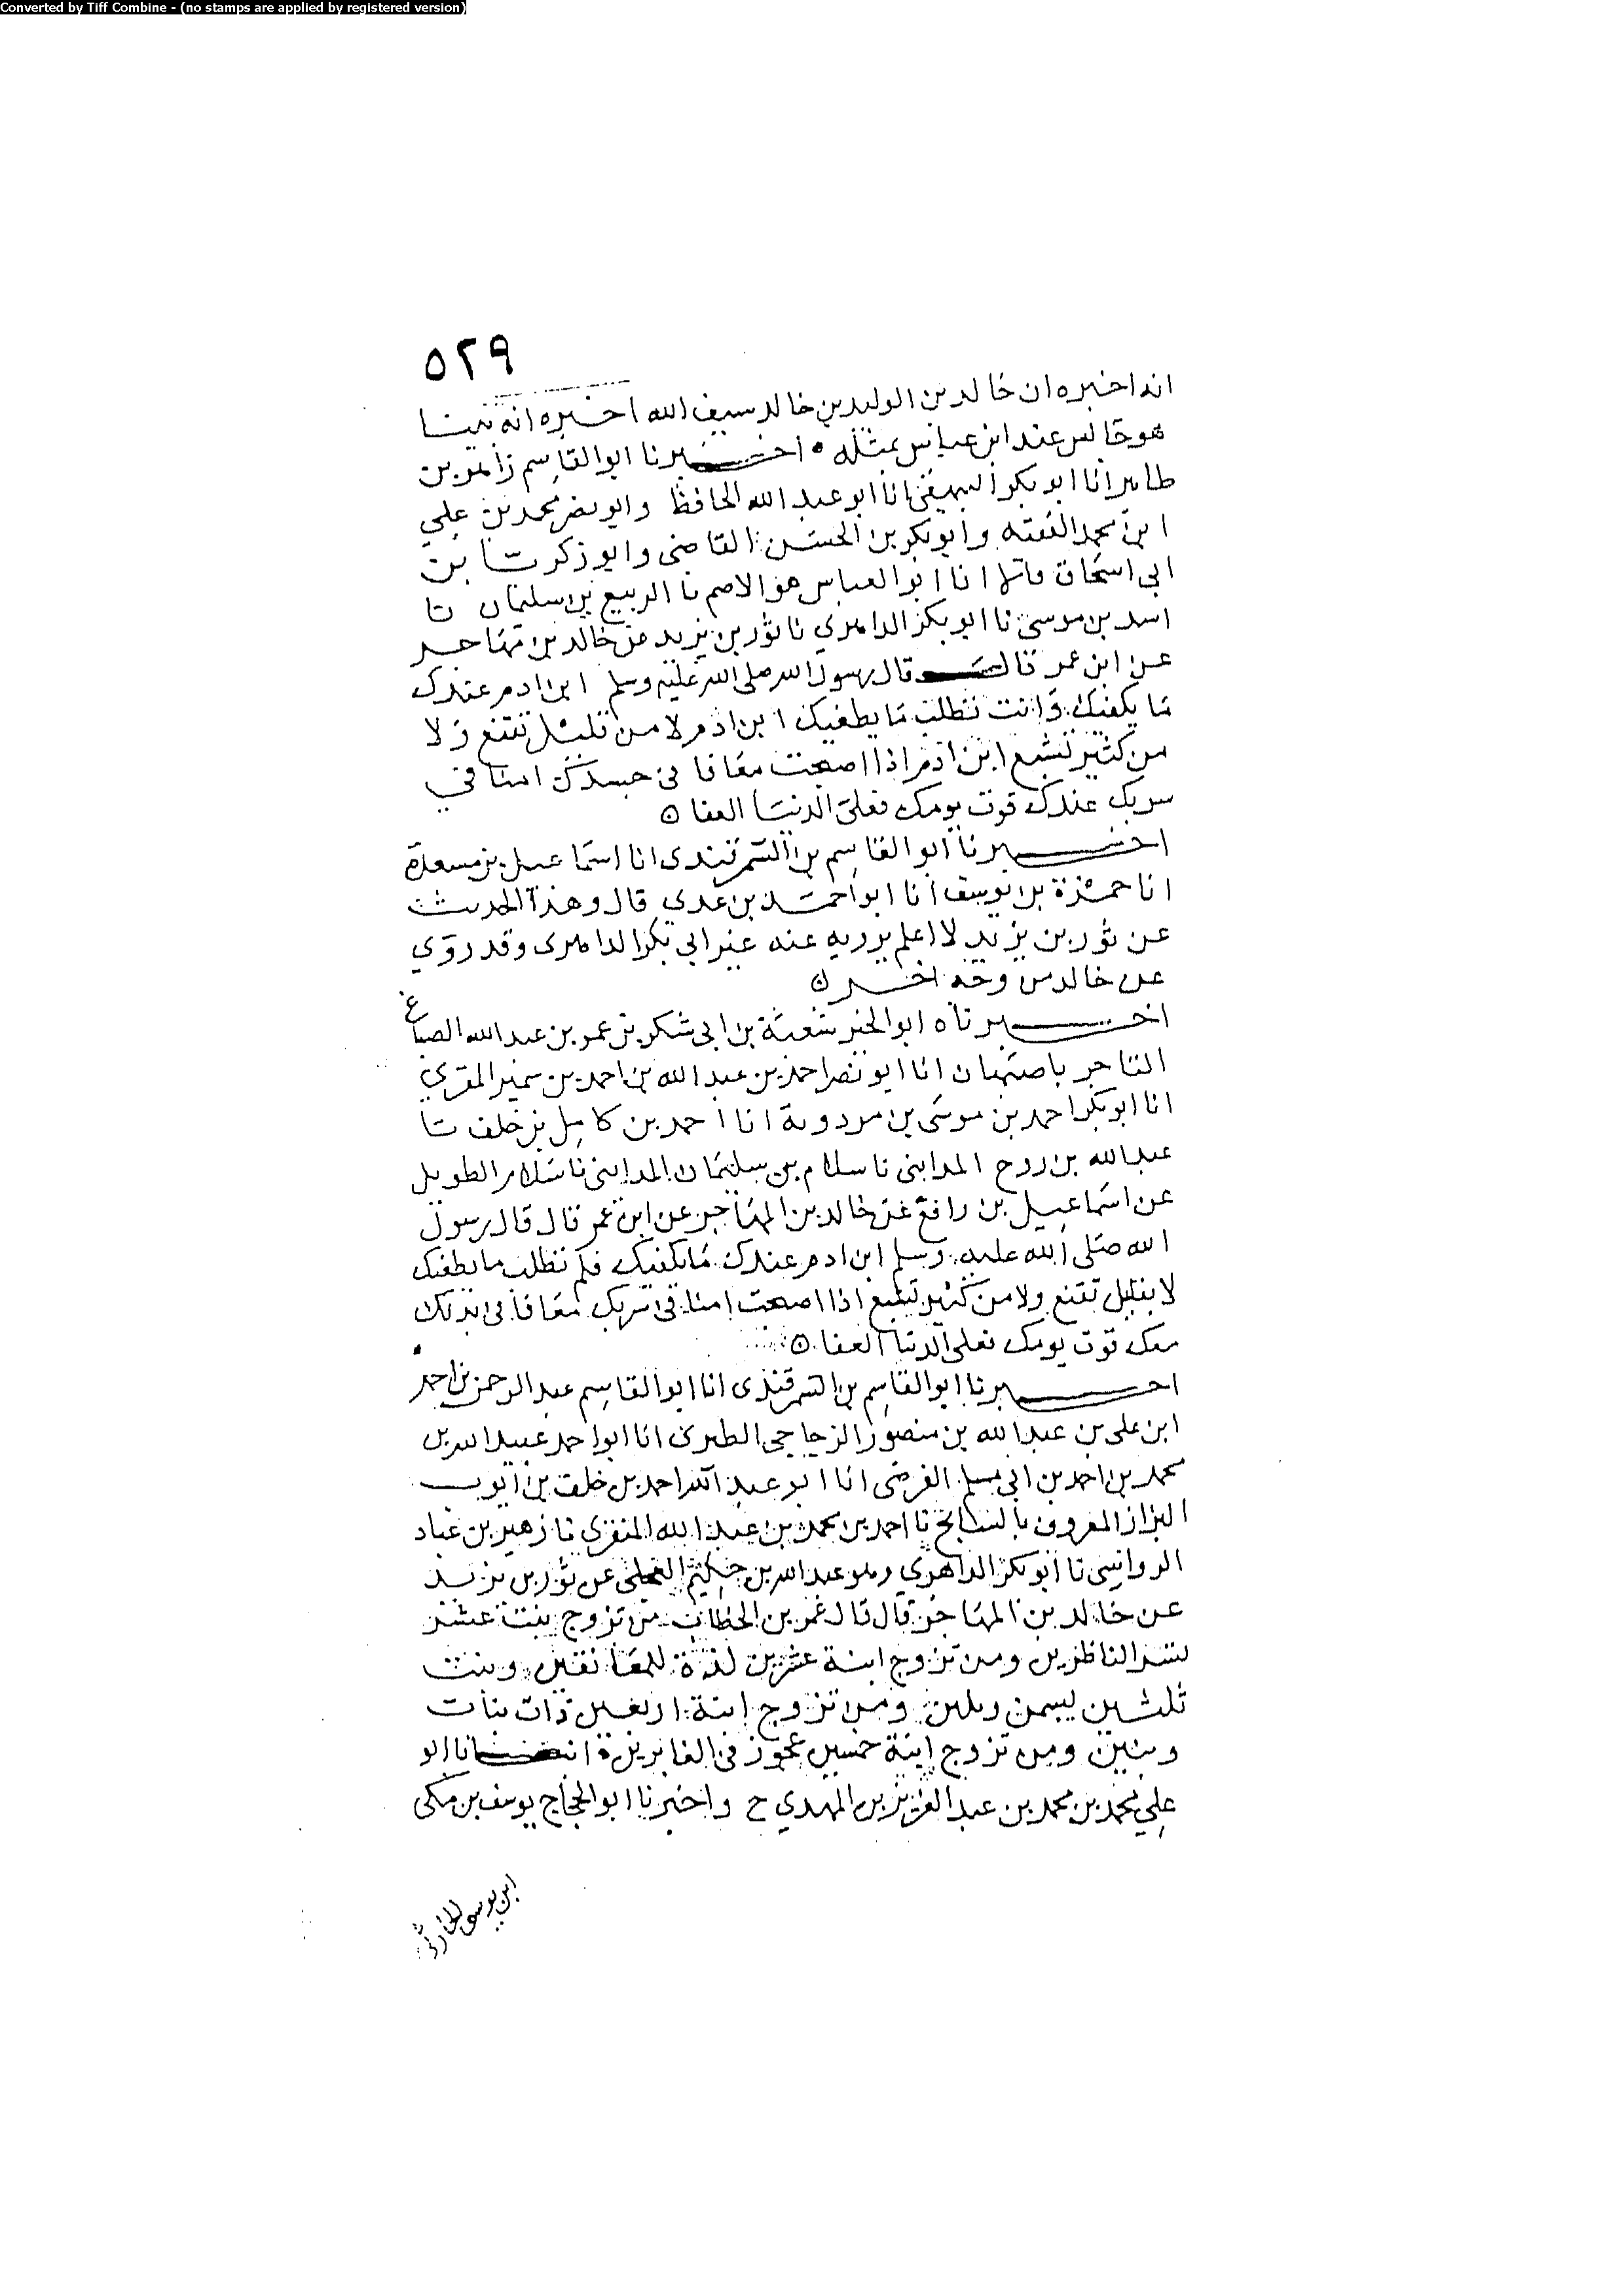 Converted by Tiff Combine - (no stamps are applied by registered version)
٥٢٩
انه اخبره ان خالد بن الوليد بن خالد سيف الله اخبره انه بينا
هو جالس عند ابن عباس بمثله ٥ اخبرنا ابو القاسم زاهر بن
طاهر انا ابو بكر البيهقي انا ابو عبد الله الحافظ وابو نصر محمد بن علي
ابن محمد الفقيه وابو بكر بن الحسن القاضي وابو زكريا بن
ابي اسحاق قالوا انا ابو العباس هو الاصم نا الربيع بن سليمان نا
اسد بن موسى نا ابو بكر الداهري نا ثور بن يزيد عن خالد بن مهاجر
عن ابن عمر قال قال رسول الله صلى الله عليه وسلم ابن ادم عندك
ما يكفيك وانت تطلب ما يطغيك ابن ادم لا من قليل تقنع ولا
من كثير تشبع ابن ادم اذا اصبحت معافا في جسدك امنا في
سربك عندك قوت يومك فعلى الدنيا العفا ٥
اخبرنا ابو القاسم بن السمرقندي انا اسماعيل بن مسعدة
انا حمزة بن يوسف انا ابو احمد بن عدي قال وهذا الحديث
عن ثور بن يزيد لا اعلم يرويه عنه غير ابي بكر الداهري وقد روي
عن خالد من وجه اخر ٥
اخبرناه ابو الخير شعبة بن ابي شكر بن عمر بن عبد الله الصباغ
التاجر باصبهان انا ابو نصر احمد بن عبد الله بن احمد بن سمير المقري
انا ابو بكر احمد بن موسى بن مردوية انا احمد بن كامل بن خلف نا
عبد الله بن روح المدايني نا سلام بن سليمان المدايني نا سلام الطويل
عن اسماعيل بن رافع عن خالد بن المهاجر عن ابن عمر قال قال رسول
الله صلى الله عليه وسلم ابن ادم عندك ما يكفيك فلم تطلب ما يطغيك
لا بقليل تقنع ولا من كثير تشبع اذا اصبحت امنا في سربك معافا في بدنك
معك قوت يومك فعلى الدنيا العفا ٥
اخبرنا ابو القاسم بن السمرقندي انا ابو القاسم عبد الرحمن بن احمد
ابن علي بن عبد الله بن منصور الزجاجي الطبري انا ابو احمد عبيد الله بن
محمد بن احمد بن ابي مسلم الفرضي انا ابو عبد الله احمد بن خلف بن ايوب
البزاز المعروف بالسابح نا احمد بن محمد بن عبد الله المنقري نا زهير بن عباد
الرواسي نا ابو بكر الداهري وهو عبد الله بن حكيم عن ثور بن يزيد
عن خالد بن المهاجر قال قال عمر بن الخطاب من تزوج بنت عشر
تسر الناظرين ومن تزوج ابنة عشرين لذة للمعانقين وبنت
ثلثين تسمن وتلين ومن تزوج ابنة اربعين ذات بنات
وبنين ومن تزوج ابنة خمسين عجوز في الغابرين ٥ انبانا ابو
علي محمد بن محمد بن عبد العزيز بن المهدي ح واخبرنا ابو الحجاج يوسف بن مكي
ابن يوسف الحارثي